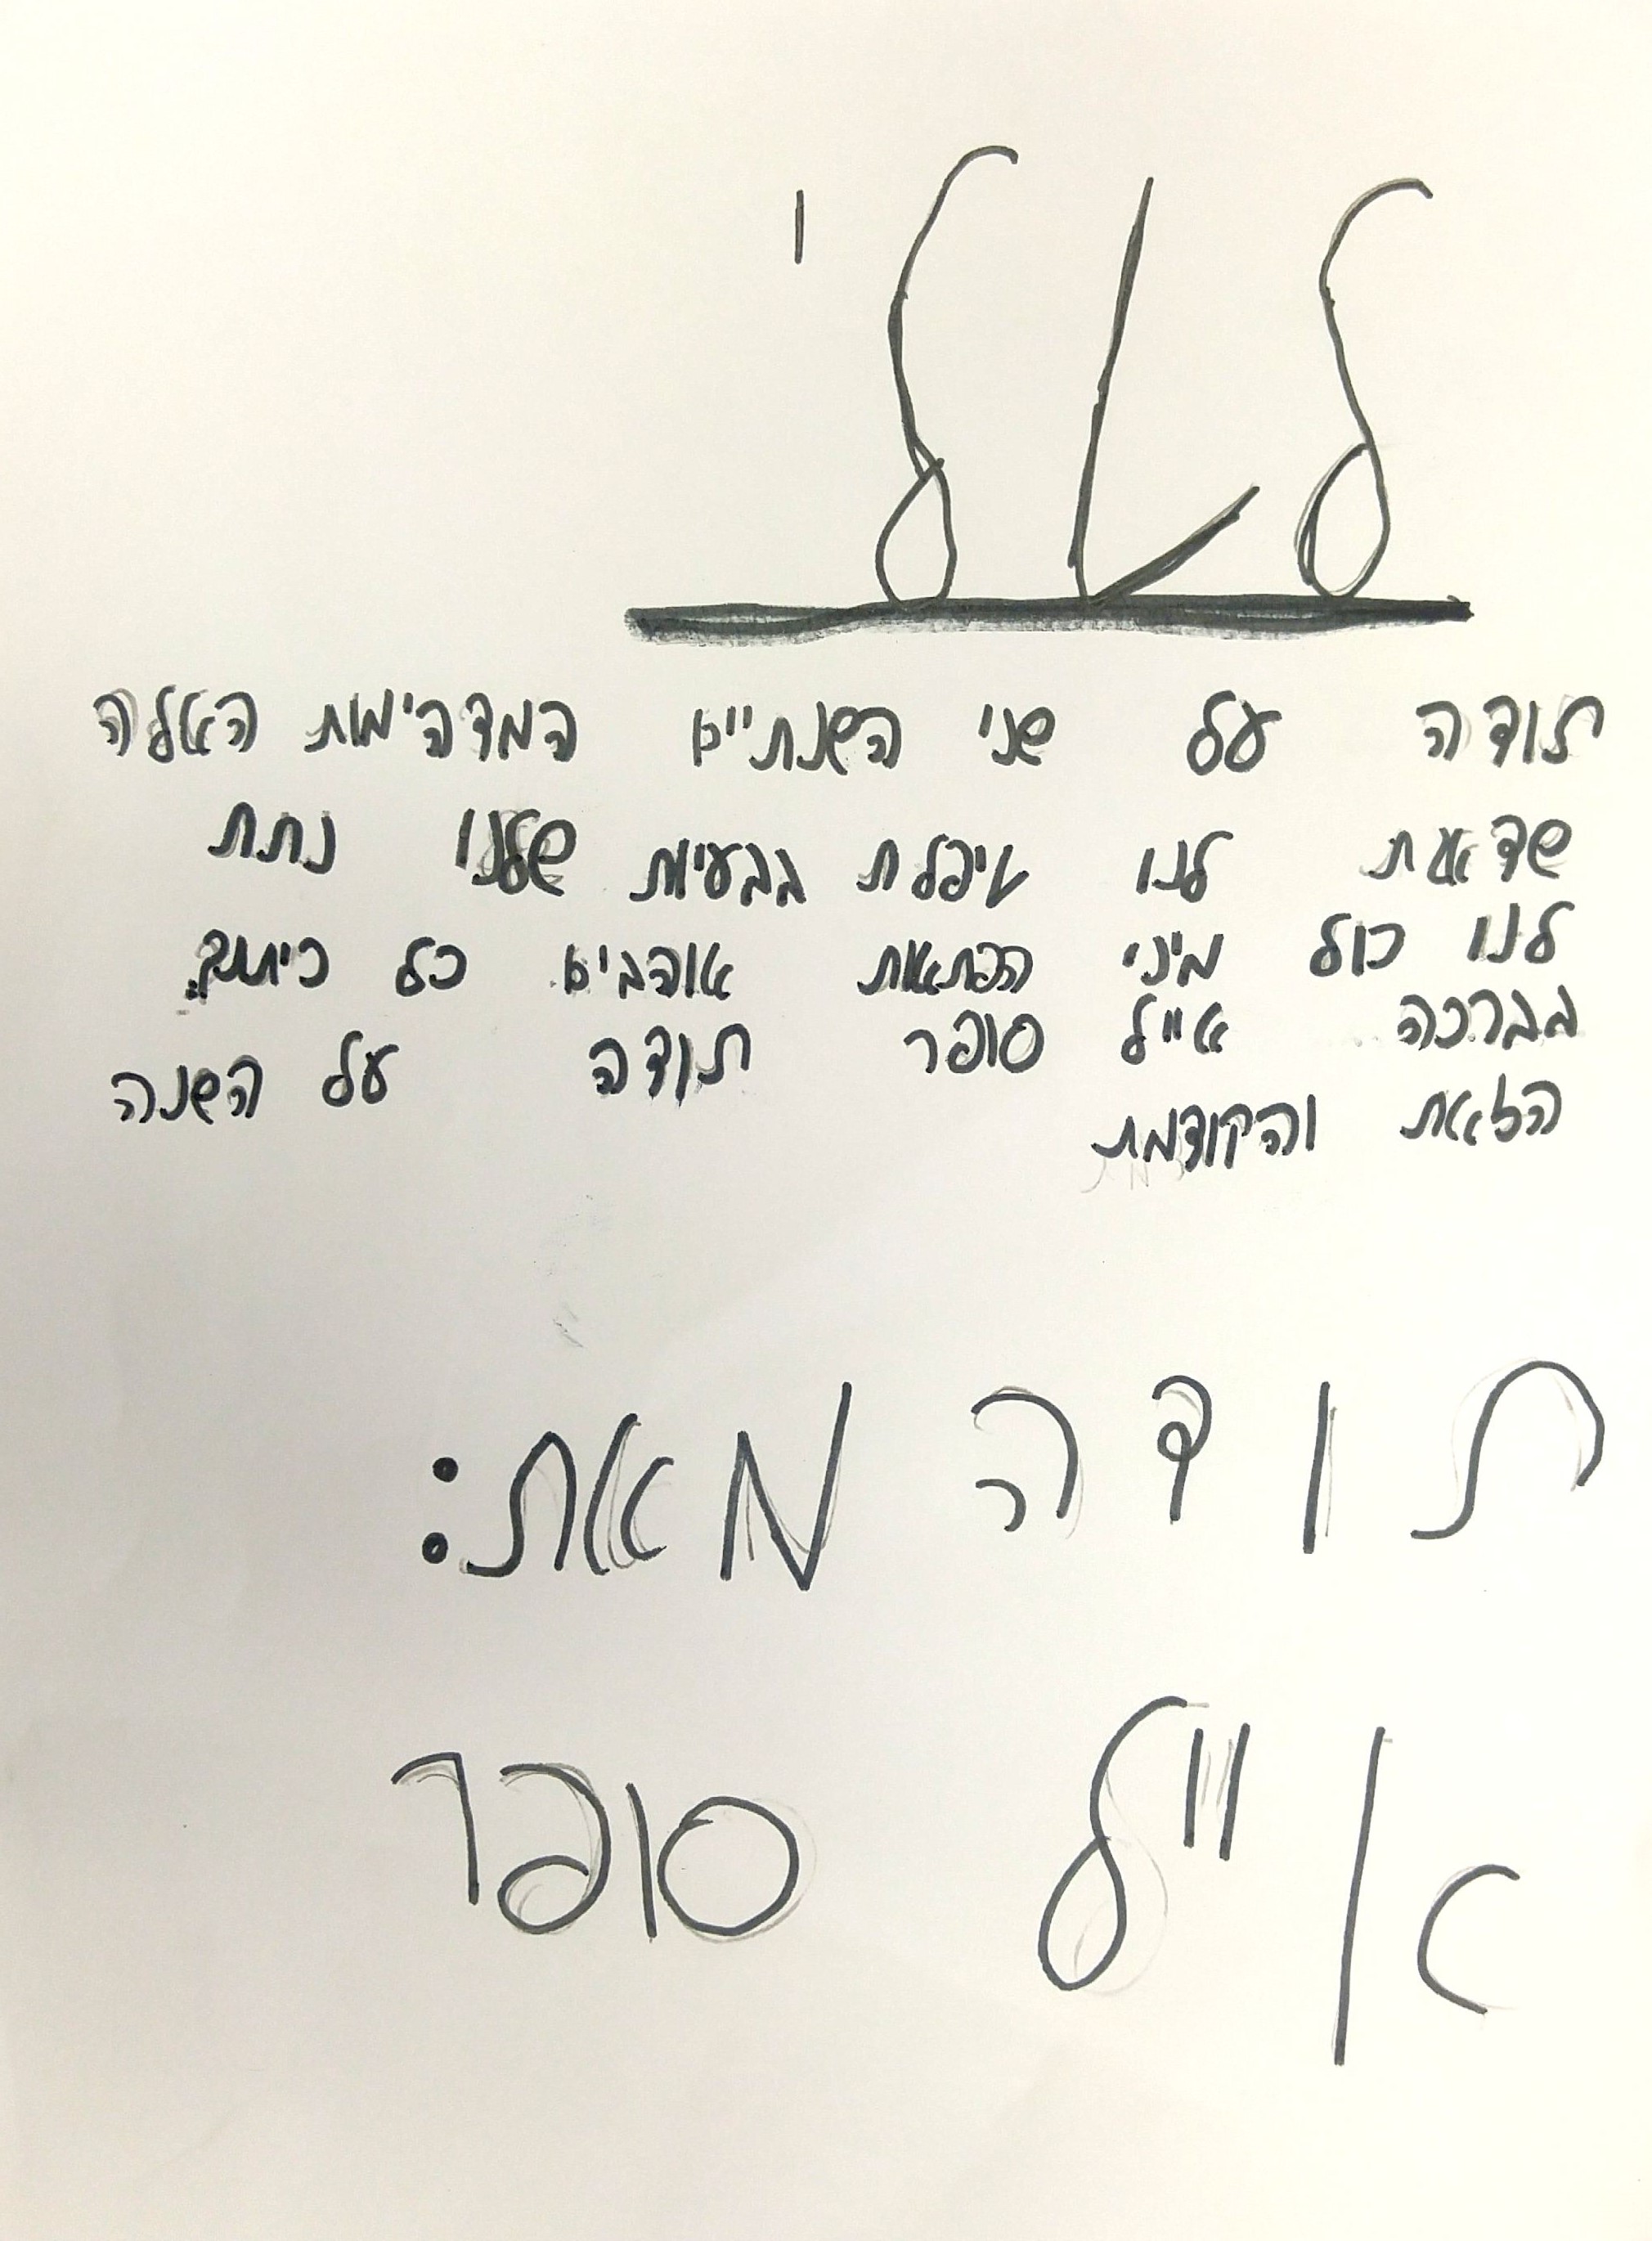 לטלי
תודה על שני השנתיים המדהימות האלה
שדאת לנו טיפלת בבעיות שלנו נתת
לנו כול מיני הפתאות אוהבים כל
בברכה אייל סופר תודה על השנה
הזאת והקודמת
תודה מאת:
אייל סופר